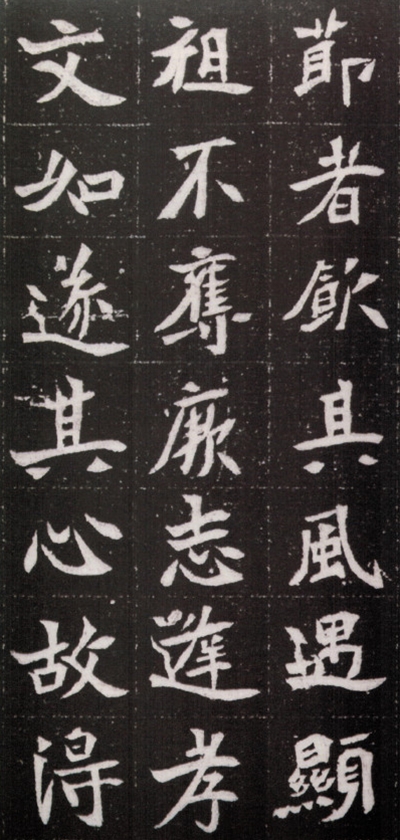 節者飲其風遇顯
祖不奪厥志逢孝
文如遂其心故得